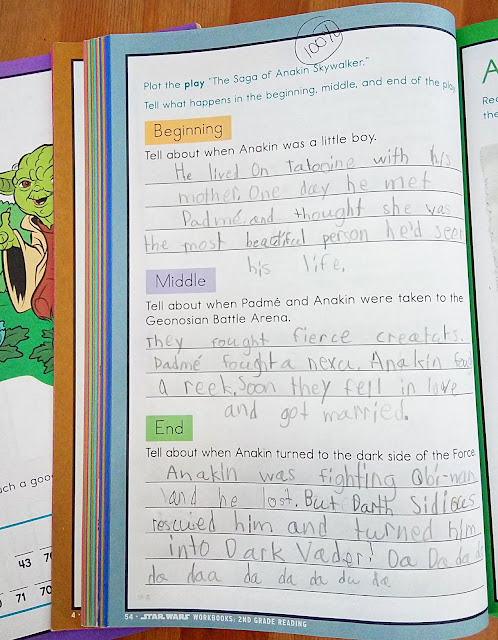 100%
Plot the play "The Saga of Anakin Skywalker."
Tell what happens in the beginning, middle, and end of the play
Beginning
Tell about when Anakin was a little boy.
He lived On Tatooine with his
mother. One day he met
Padmé, and thought she was
the most beautifeel person he'd seen
his life.
Middle
Tell about when Padmé and Anakin were taken to the
Geonosian Battle Arena.
They fought fierce creatcrs.
Padmé fought a nexu. Anakin
a reek. Soon they fell in love
and got married.
End
Tell about when Anakin turned to the dark side of the Force
Anakin was fighting Obi-wan
and he lost. But Darth Sidious
rescuied him and turned him
into Dark Vader! Da Da da d
da daa da da da da da
54 • STAR WARS WORKBOOKS: 2ND GRADE READING
uch a goo
43 70
71 70
4 •
A
Rea
the